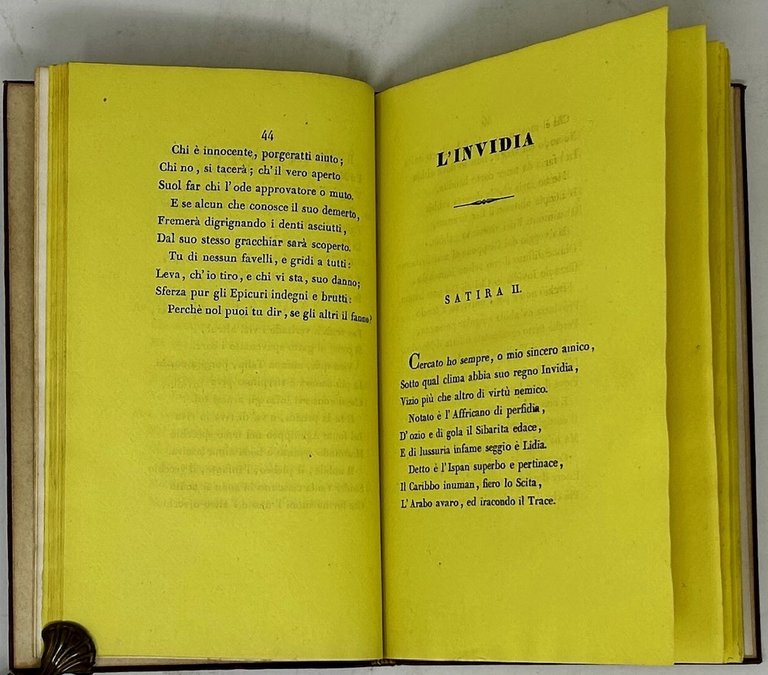 44
Chi è innocente, porgeratti aiuto;
Chi no, si tacerà; ch'il vero aperto
Suol far chi l'ode approvatore o muto.
E se alcun che conosce il suo demerto,
Fremerà digrignando i denti asciutti,
Dal suo stesso gracchiar sarà scoperto.
Tu di nessun favelli, e gridi a tutti:
Leva, ch'io tiro, e chi vi sta, suo danno;
Sferza pur gli Epicuri indegni e brutti:
Perchè nol puoi tu dir, se gli altri il fanno?
L'INVIDIA
SATIRA II.
Cercato ho sempre, o mio sincero amico,
Sotto qual clima abbia suo regno Invidia,
Vizio più che altro di virtù nemico.
Notato è l'Affricano di perfidia,
D'ozio e di gola il Sibarita edace,
E di lussuria infame seggio è Lidia.
Detto è l'Ispan superbo e pertinace,
Il Caribbo inuman, fiero lo Scita,
L'Arabo avaro, ed iracondo il Trace.